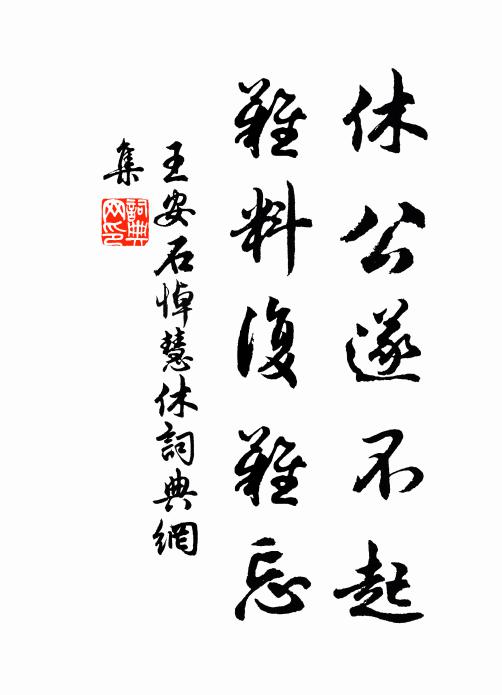 休公遂不起
難料復難忘
王安石悼慧休詞典網
集
詞典
网印